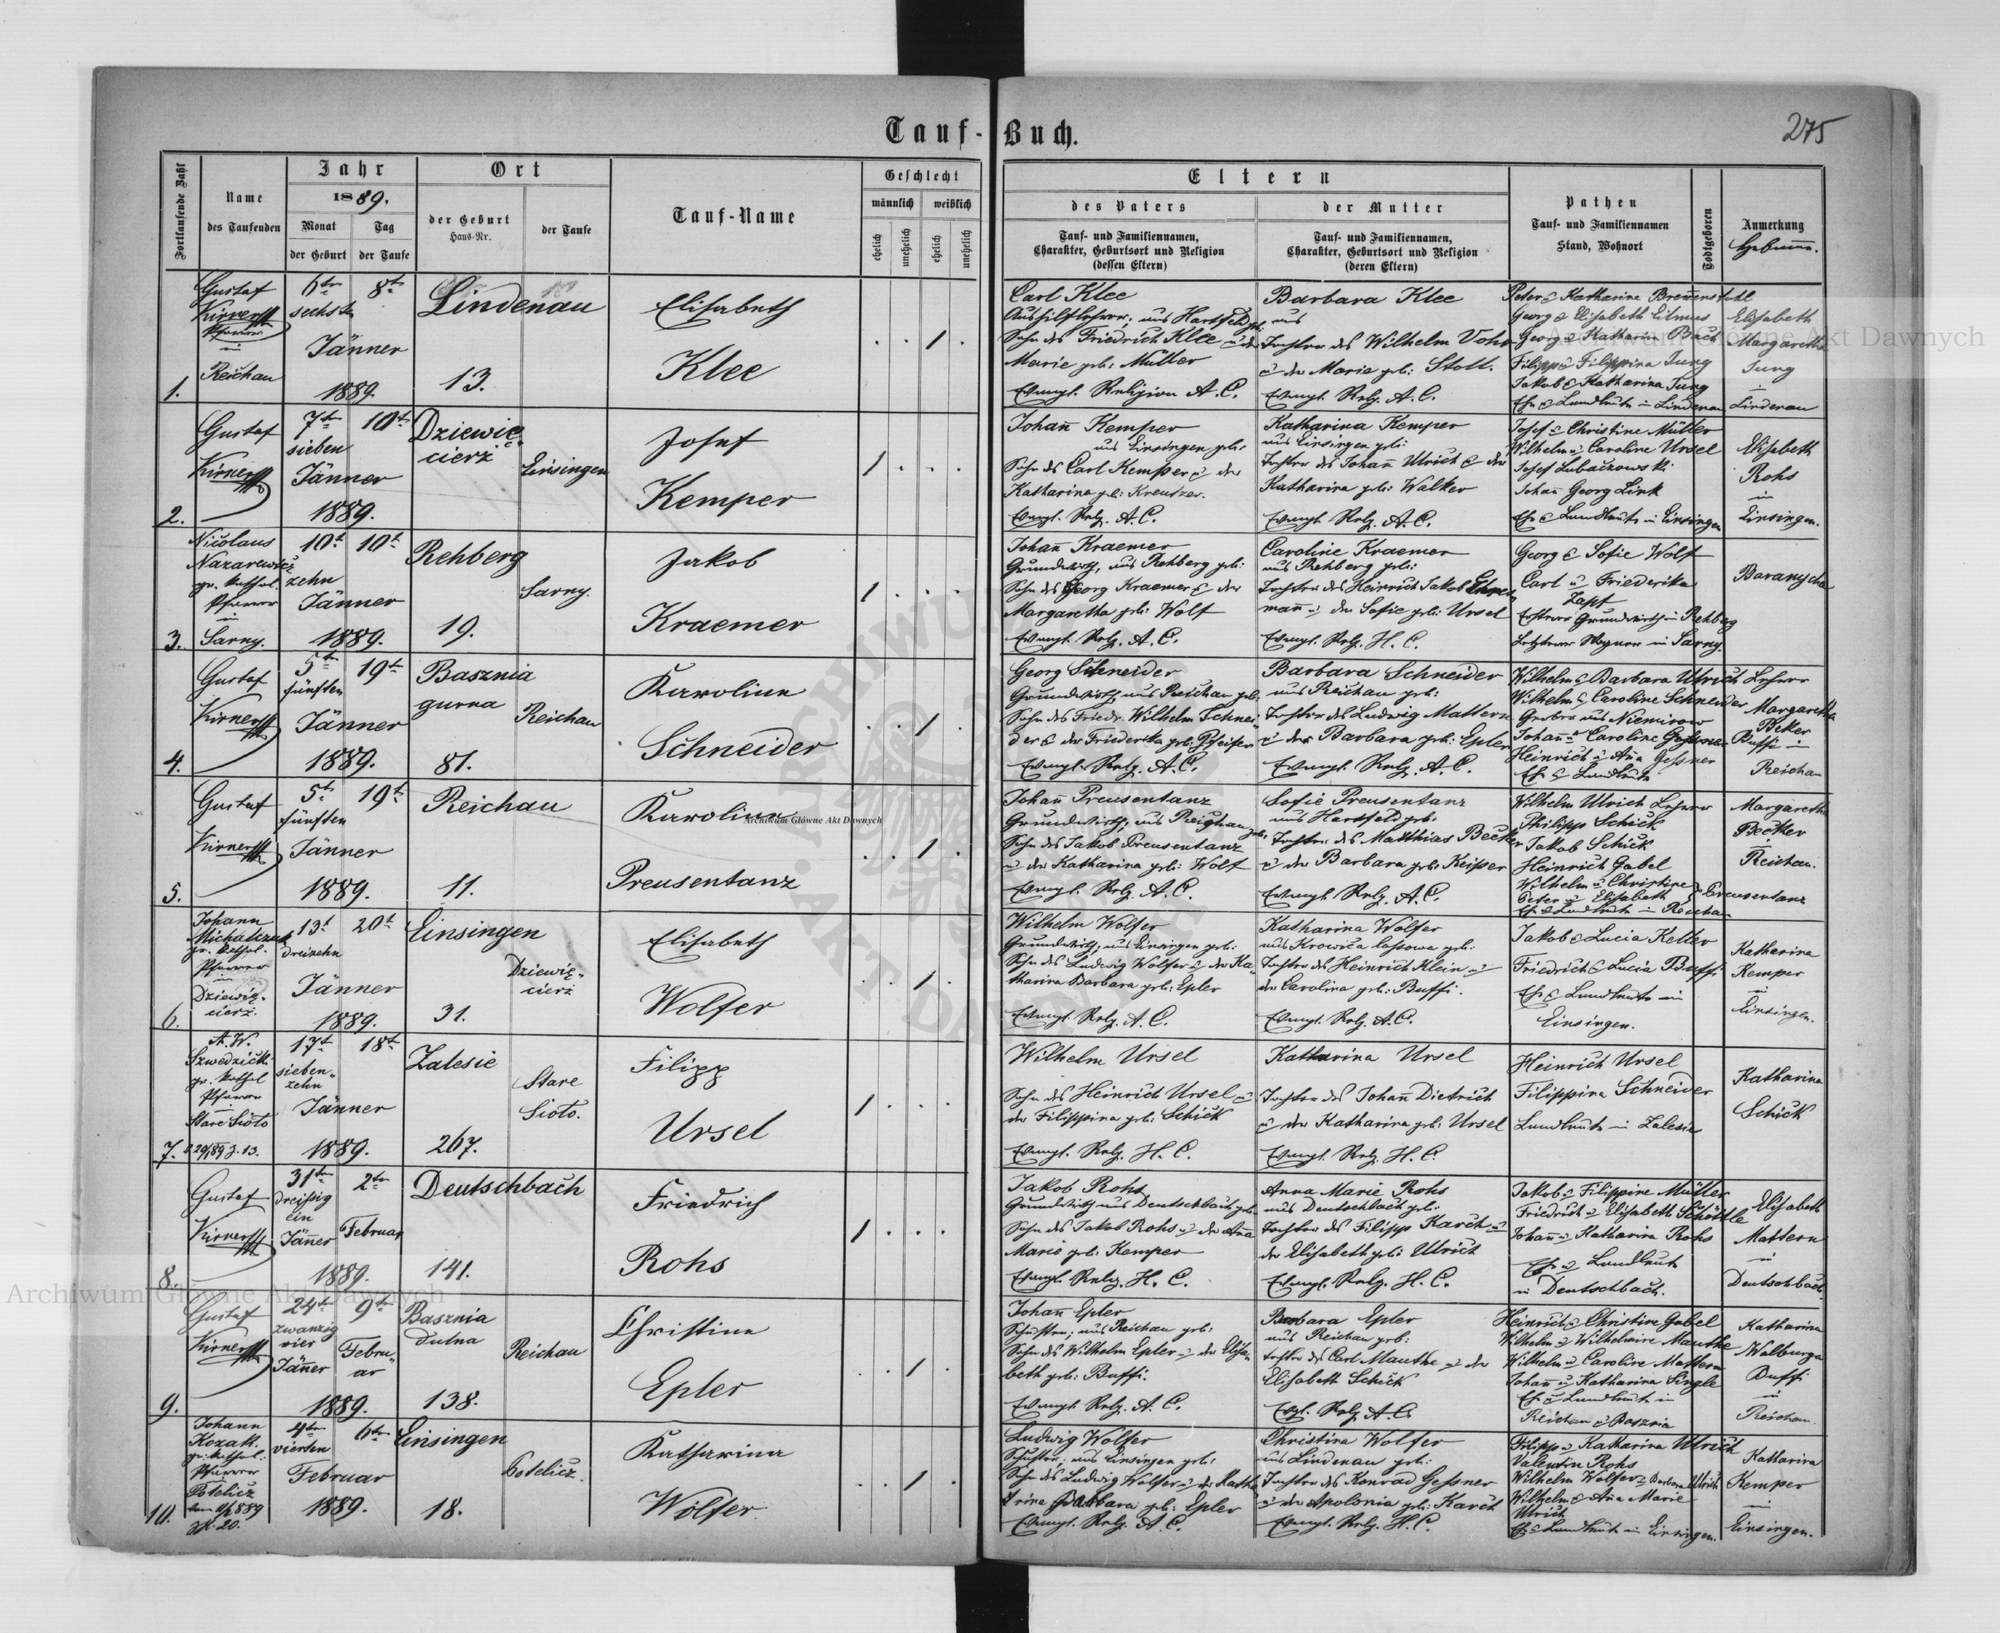 Tauf-Buch.
275
Fortlaufende Zahl
Name
des Taufenden
Jahr
1889.
Monat
der Geburt
Tag
der Taufe
Ort
der Geburt
Haus-Nr.
der Taufe
Tauf-Name
Geschlecht
männlich
weiblich
ehelich
unehelich
ehelich
unehelich
Eltern
des Vaters
Tauf- und Familiennamen,
Charakter, Geburtsort und Religion
(dessen Eltern)
der Mutter
Tauf- und Familiennamen,
Charakter, Geburtsort und Religion
(deren Eltern)
Pathen
Tauf- und Familiennamen
Stand, Wohnort
Todtgeboren
Anmerkung
Hebamme.
1.
Gustaf
Kirner
Pfarrer
in
Reichau
6ten
sechsten
Jänner
1889.
8t
Lindenau
13.
Elisabeth
Klee
Carl Klee
Aushilfslehrer, aus Hartfeld
Sohn des Friedrich Klee u der
Marie geb: Müller
Evangl. Religion A. C.
Barbara Klee
aus
Tochter des Wilhelm Vohr
u der Maria geb: Stoll.
Evangl. Relg. A. C.
Peter & Katharina Bremenstuhl
Georg & Elisabeth
Georg & Katharina
Filipp & Filippina Jung
Jakob & Katharina Jung
Eh. & Landleute in Lindenau
Elisabeth
Margaretha
Jung
in
Lindenau
2.
Gustaf
Kirner
7t
sieben
Jänner
1889.
10t
Dziewię-
cierz
Einsingen
Josef
Kemper
Johann Kemper
aus Einsingen geb:
Sohn des Carl Kemper u der
Katharina geb: Kreutzer.
Evangl. Relg. A. C.
Katharina Kemper
aus Einsingen geb:
Tochter des Johann Ulrich & der
Katharina geb: Walker
Evangl. Relg. A. C.
Josef u Christine Müller
Wilhelm u Caroline Ursel
Josef Lubaczowski
Johann Georg Link
Eh. & Landleute in Einsingen
Elisabeth
Rohs
in
Einsingen.
3.
Nicolaus
Nazarewicz
gr. kathol.
Pfarrer
in
Sarny.
10t
zehn
Jänner
1889.
10t
Rehberg
19.
Sarny.
Jakob
Kraemer
Johann Kraemer
Grundwirth, aus Rehberg geb:
Sohn des Georg Kraemer & der
Margaretha geb: Wolf
Evangl. Relg. A. C.
Caroline Kraemer
aus Rehberg geb:
Tochter des Heinrich Jakob Ehre
mann u der Sofie geb: Ursel
Evangl. Relg. H. C.
Georg & Sofie Wolf
Carl u Friederike
Zapf
Ersterer Grundwirth in Rehberg
Letzterer Wagner in Sarny.
4.
Gustaf
Kirner
5t
fünften
Jänner
1889.
19t
Basznia
gurna
81.
Reichau
Karolina
Schneider
Georg Schneider
Grundwirth, aus Reichau geb:
Sohn des Friedr. Wilhelm Schnei-
der & der Friederika geb: Pfeifer
Evangl. Relg. A. C.
Barbara Schneider
aus Reichau geb:
Tochter des Ludwig Mattern
u der Barbara geb: Epler
Evangl. Relg. A. C.
Wilhelm & Barbara Ulrich Lehrer
Wilhelm & Caroline Schneider
aus Niemirow
Johann u Caroline
Heinrich u Ana Gessner
Eh. & Landleute
Margaretha
Beker
in
Reichau
5.
Gustaf
Kirner
5t
fünften
Jänner
1889.
19t
Reichau
11.
Karolina
Preusentanz
Johann Preusentanz
Grundwirth, aus Reichau geb:
Sohn des Jakob Preusentanz
u der Katharina geb: Wolf
Evangl. Relg. A. C.
Sofie Preusentanz
aus Hartfeld geb:
Tochter des Matthias Becker
u der Barbara geb: Keiper
Evangl. Relg. A. C.
Wilhelm Ulrich Lehrer
Philipp Schick
Jakob Schick
Heinrich Gabel
Wilhelm u Christine
Peter u Elisabeth Preusentanz
Eh. & Landleute in Reichau
Margaretha
Becker
in
Reichau.
6.
Johann
Michalczuk
gr. kathol.
Pfarrer
in
Dziewię-
cierz.
13t
dreizehn
Jänner
1889.
20t
Einsingen
31.
Dziewię-
cierz
Elisabeth
Wolfer
Wilhelm Wolfer
Grundwirth, aus Einsingen geb:
Sohn des Ludwig Wolfer u der Ka-
tharina Barbara geb: Epler
Evangl. Relg. A. C.
Katharina Wolfer
aus Krowica lasowa geb:
Tochter des Heinrich Klein u
der Carolina geb: Buffi.
Evangl. Relg. A. C.
Jakob & Lucia Keller
Friedrich & Lucia Buffi
Eh. & Landleute in
Einsingen.
Katharina
Kemper
in
Einsingen.
7.
A. W.
Szwedzicki
gr. kathol
Pfarrer
in
Stare Siolo
17t
sieben-
zehn
Jänner
1889.
18t
Zalesie
267.
Stare
Siolo.
Filipp
Ursel
Wilhelm Ursel
Sohn des Heinrich Ursel u
der Filippina geb: Schick
Evangl. Relg. H. C.
Katharina Ursel
Tochter des Johann Dietrich
u der Katharina geb: Ursel
Evangl. Relg. H. C.
Heinrich Ursel
Filippina Schneider
Landleute in Zalesie
Katharina
Schick
8.
Gustaf
Kirner
31ten
dreißig
ein
Jänner
1889.
2ten
Februar
Deutschbach
141.
Friedrich
Rohs
Jakob Rohs
Grundwirth aus Deutschbach geb:
Sohn des Jakob Rohs u der Anna
Marie geb: Kemper
Evangl. Relg. H. C.
Anna Marie Rohs
aus Deutschbach geb:
Tochter des Filipp Karch u
der Elisabeth geb: Ulrich
Evangl. Relg. H. C.
Jakob u Filippine Müller
Friedrich u Elisabeth Schöttle
Johann u Katharina Rohs
Eh. u Landleute
in Deutschbach.
Elisabeth
Mattern
in
Deutschbach.
9.
Gustaf
Kirner
24ten
zwanzig
vier
Jänner
1889.
9ten
Febru-
ar
Basznia
dulna
138.
Reichau
Christina
Epler
Johann Epler
Schuster, aus Reichau geb:
Sohn des Wilhelm Epler u der Elisa-
beth geb: Buffi.
Evangl. Relg. A. C.
Barbara Epler
aus Reichau geb:
Tochter des Carl Mauthe u der
Elisabeth Schick
Evgl. Relg. A. C.
Heinrich & Christine Gabel
Wilhelm u Wilhelmine Mauthe
Wilhelm u Caroline Mattern
Johann u Katharina Single
Eh. u Landleute in
Reichau & Basznia
Katharina
Walburga
Buffi
in
Reichau.
10.
Johann
Kozak.
gr. kathol.
Pfarrer
Potelicz
4ten
vierten
Februar
1889.
6ten
Einsingen
18.
Potelicz.
Katharina
Wolfer
Ludwig Wolfer
Schuster, aus Einsingen geb:
Sohn des Ludwig Wolfer u der Katha
rina Barbara geb: Epler
Evangl. Relg. A. C.
Christina Wolfer
aus Lindenau geb:
Tochter des Konrad Gessner
u der Apolonia geb: Karch
Evangl. Relg. H. C.
Filipp u Katharina Ulrich
Valentin Rohs
Wilhelm Wolfer u Barbara Ulrich
Wilhelm & Ana Marie
Ulrich
Eh. & Landleute in Einsingen.
Katharina
Kemper
in
Einsingen.
Archiwum Główne Akt Dawnych
Archiwum Główne Akt Dawnych
Archiwum Główne Akt Dawnych